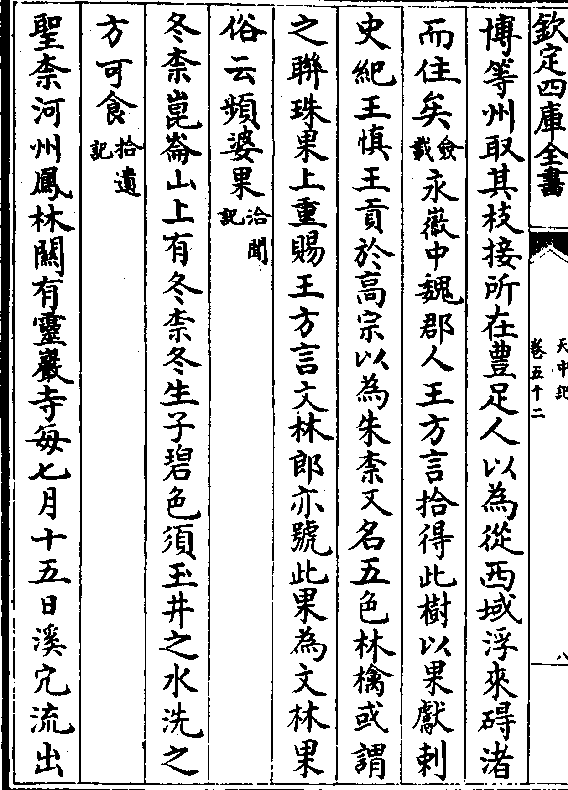 欽定四庫全書
天中記
卷五十二
八
博等州取其枝接所在豊足人以為從西域浮來碍渚
而住矣僉載永徽中魏郡人王方言拾得此樹以果獻刺
史紀王慎王貢於高宗以為朱柰又名五色林檎或謂
之聯珠果上重賜王方言文林郎亦號此果為文林果
俗云頻婆果洽聞記
冬柰崑崙山上有冬柰冬生子碧色須玉井之水洗之
方可食拾遺記
聖柰河州鳳林關有靈巖寺每七月十五日溪穴流出